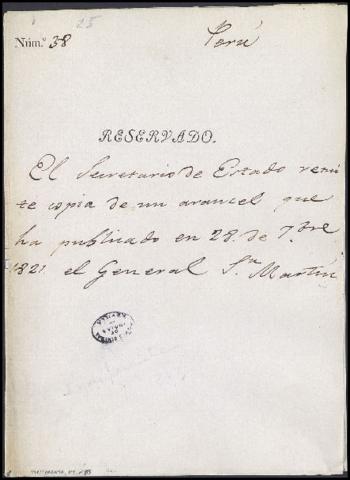 25
Núm.º 38 Perú
RESERVADO.
El Secretario de Estado remi
te copia de un arancel que
ha publicado en 28 de 7.bre
1821 el General S.n Martín